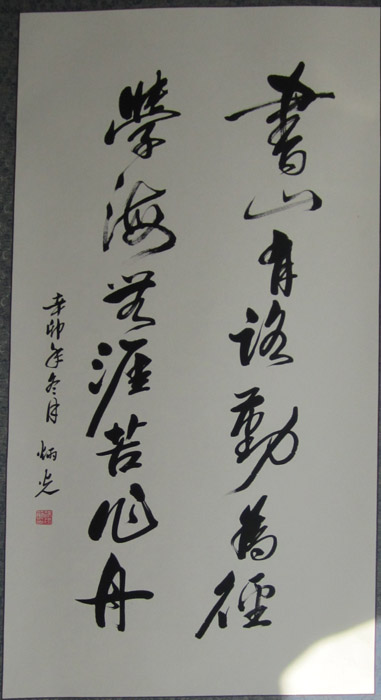 書山有路勤為徑
學海無涯苦作舟
辛卯年冬月 炳光